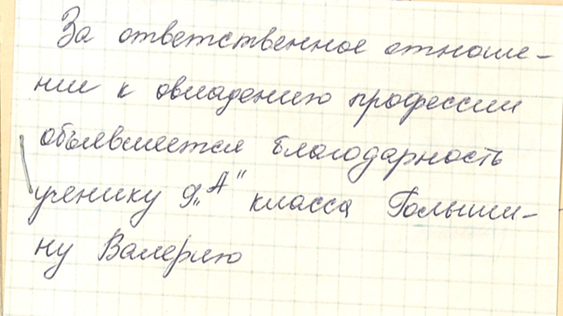 За ответственное отноше-
ние к овладению профессии
объявляется благодарность
ученику 9 „А" класса Голыши-
ну Валерию